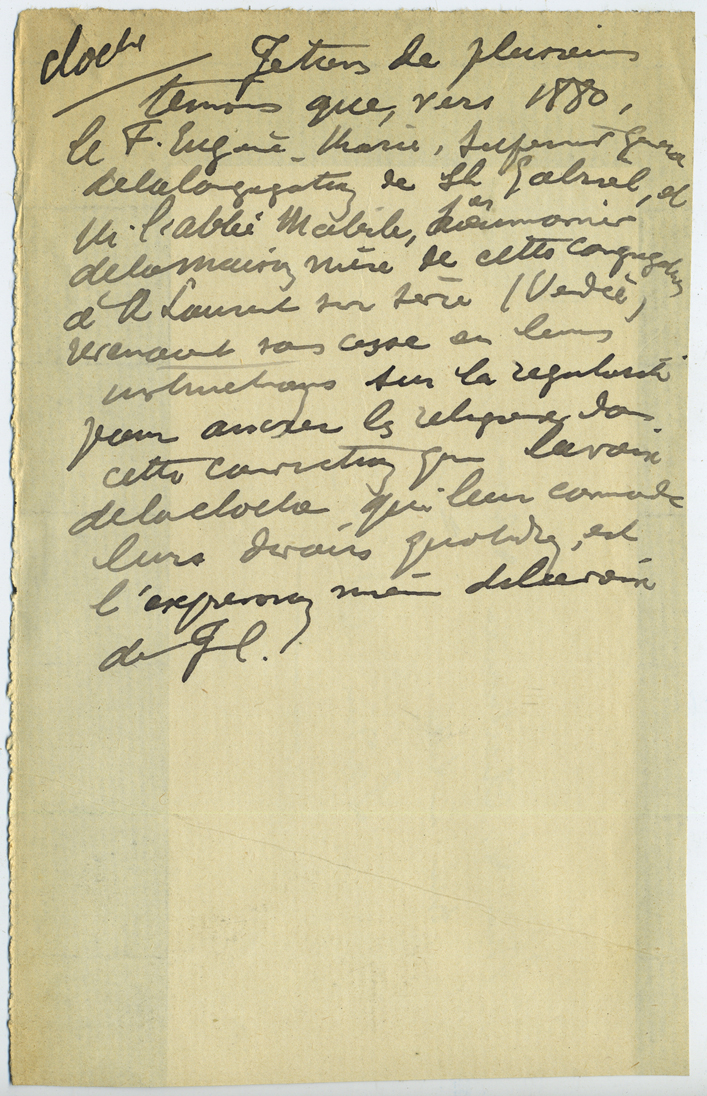 cloche
Je tiens de plusieurs
témoins que, vers 1880,
le F. Eugène-Marie, Supérieur Général
de la Congrégation de St Gabriel, et
M. l'abbé Mabile, aumonier
de la maison mère de cette congrégation
à St Laurent sur Sèvre (Vendée)
revenaient sans cesse en leurs
instructions sur la régularité
pour ancrer les religieux dans
cette conviction que la voix
de la cloche qui leur commande
leurs devoirs quotidiens, est
l'expression même de la voix
de J C.